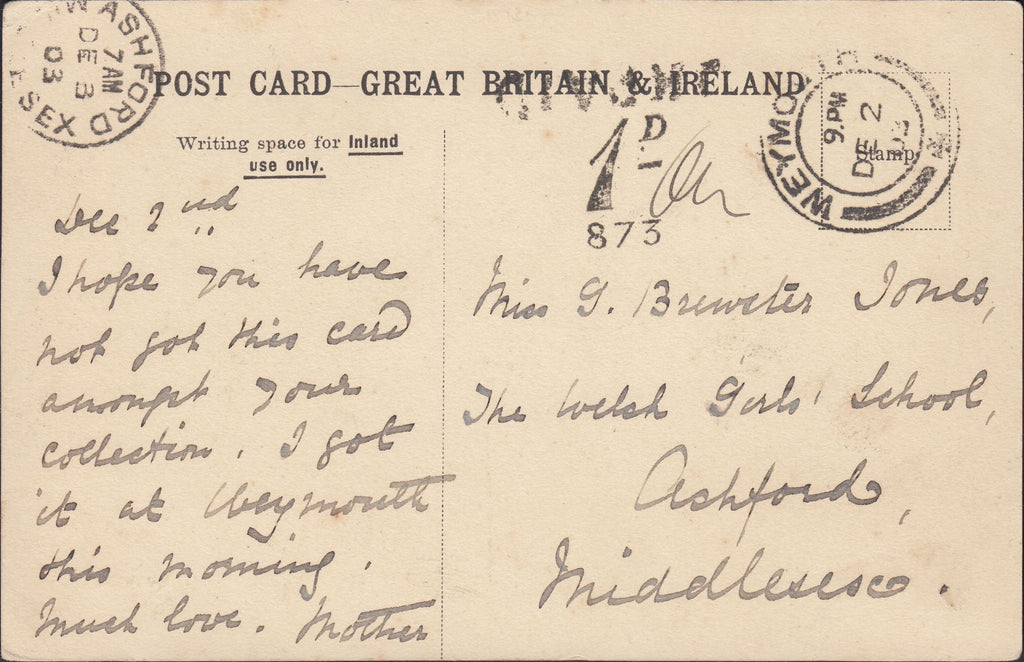 ASHFORD
7 AM
DE 3
03
POST CARD—GREAT BRITAIN & IRELAND
Writing space for Inland
use only.
1D
873
WEYMOUTH
9. PM
DE 2
03
Stamp
Dec 2nd
I hope you have
not got this card
amongst your
collection. I got
it at Weymouth
this morning.
Much love. Mother
Miss G. Brewster Jones,
The Welsh Girls' School,
Ashford,
Middlesex.